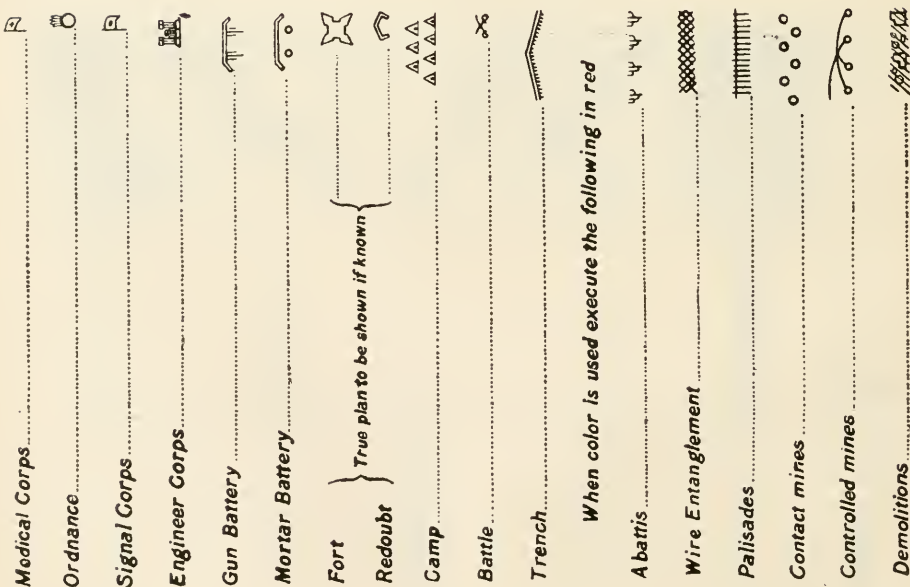 Modical Corps
Ordnance
Signal Corps
Engineer Corps
Gun Battery
Mortar Battery
Fort
True plan to be shown if known
Redoubt
Camp
Battle
Trench
When color is used execute the following in red
Abattis
Wire Entanglement
Palisades
Contact mines
Controlled mines
Demolitions